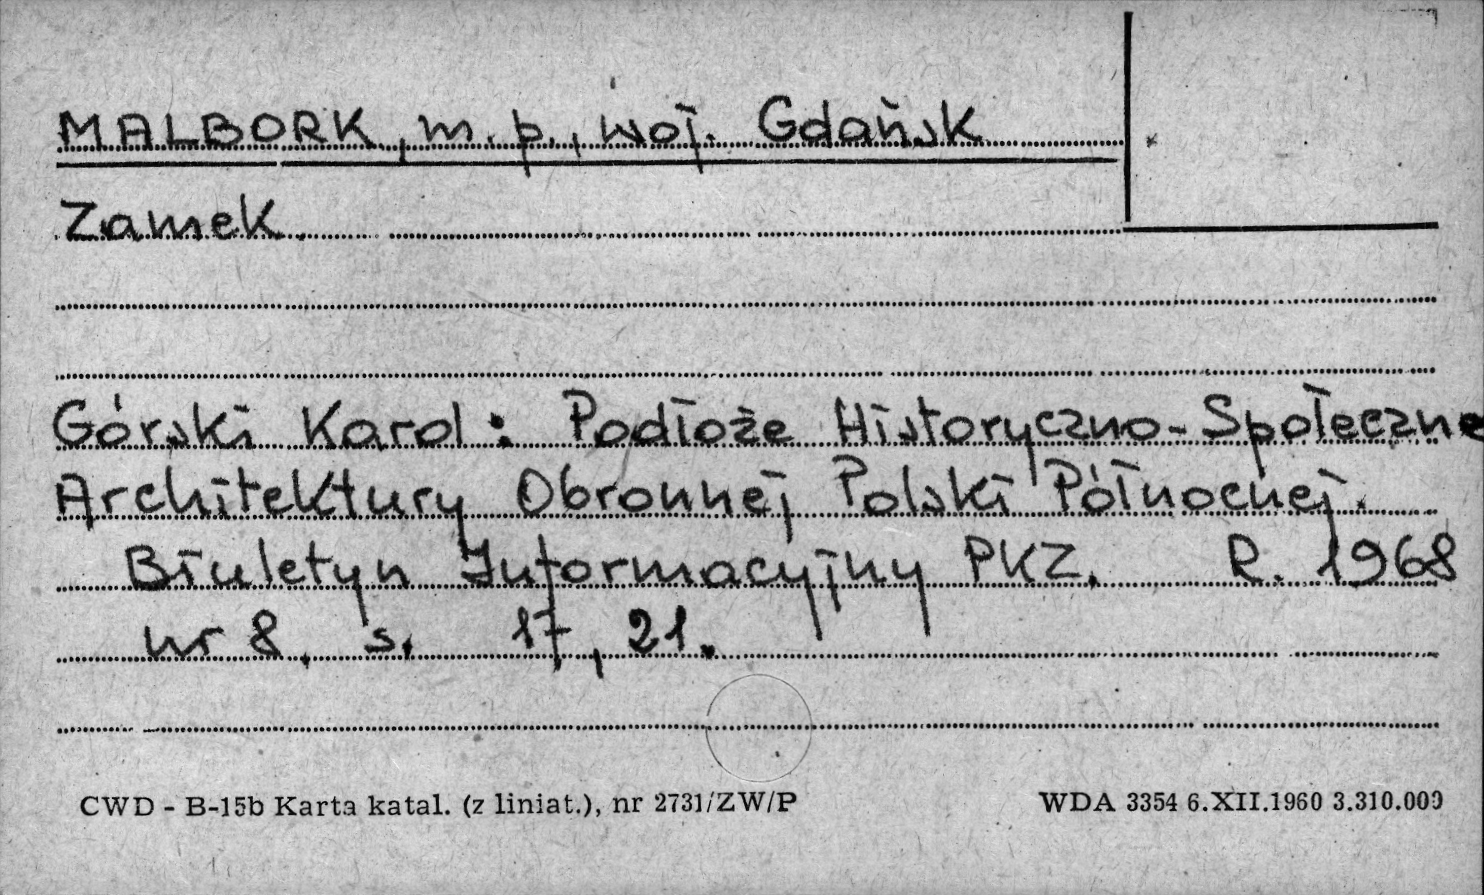 MALBORK, m. p., woj. Gdańsk
Zamek
Górski Karol: Podłoże Historyczno-Społeczne
Architektury Obronnej Polski Północnej.
Biuletyn Informacyjny PKZ. R. 1968
nr 8, s. 17, 21.
CWD - B-15b Karta katal. (z liniat.), nr 2731/ZW/P WDA 3354 6.XII.1960 3.310.000